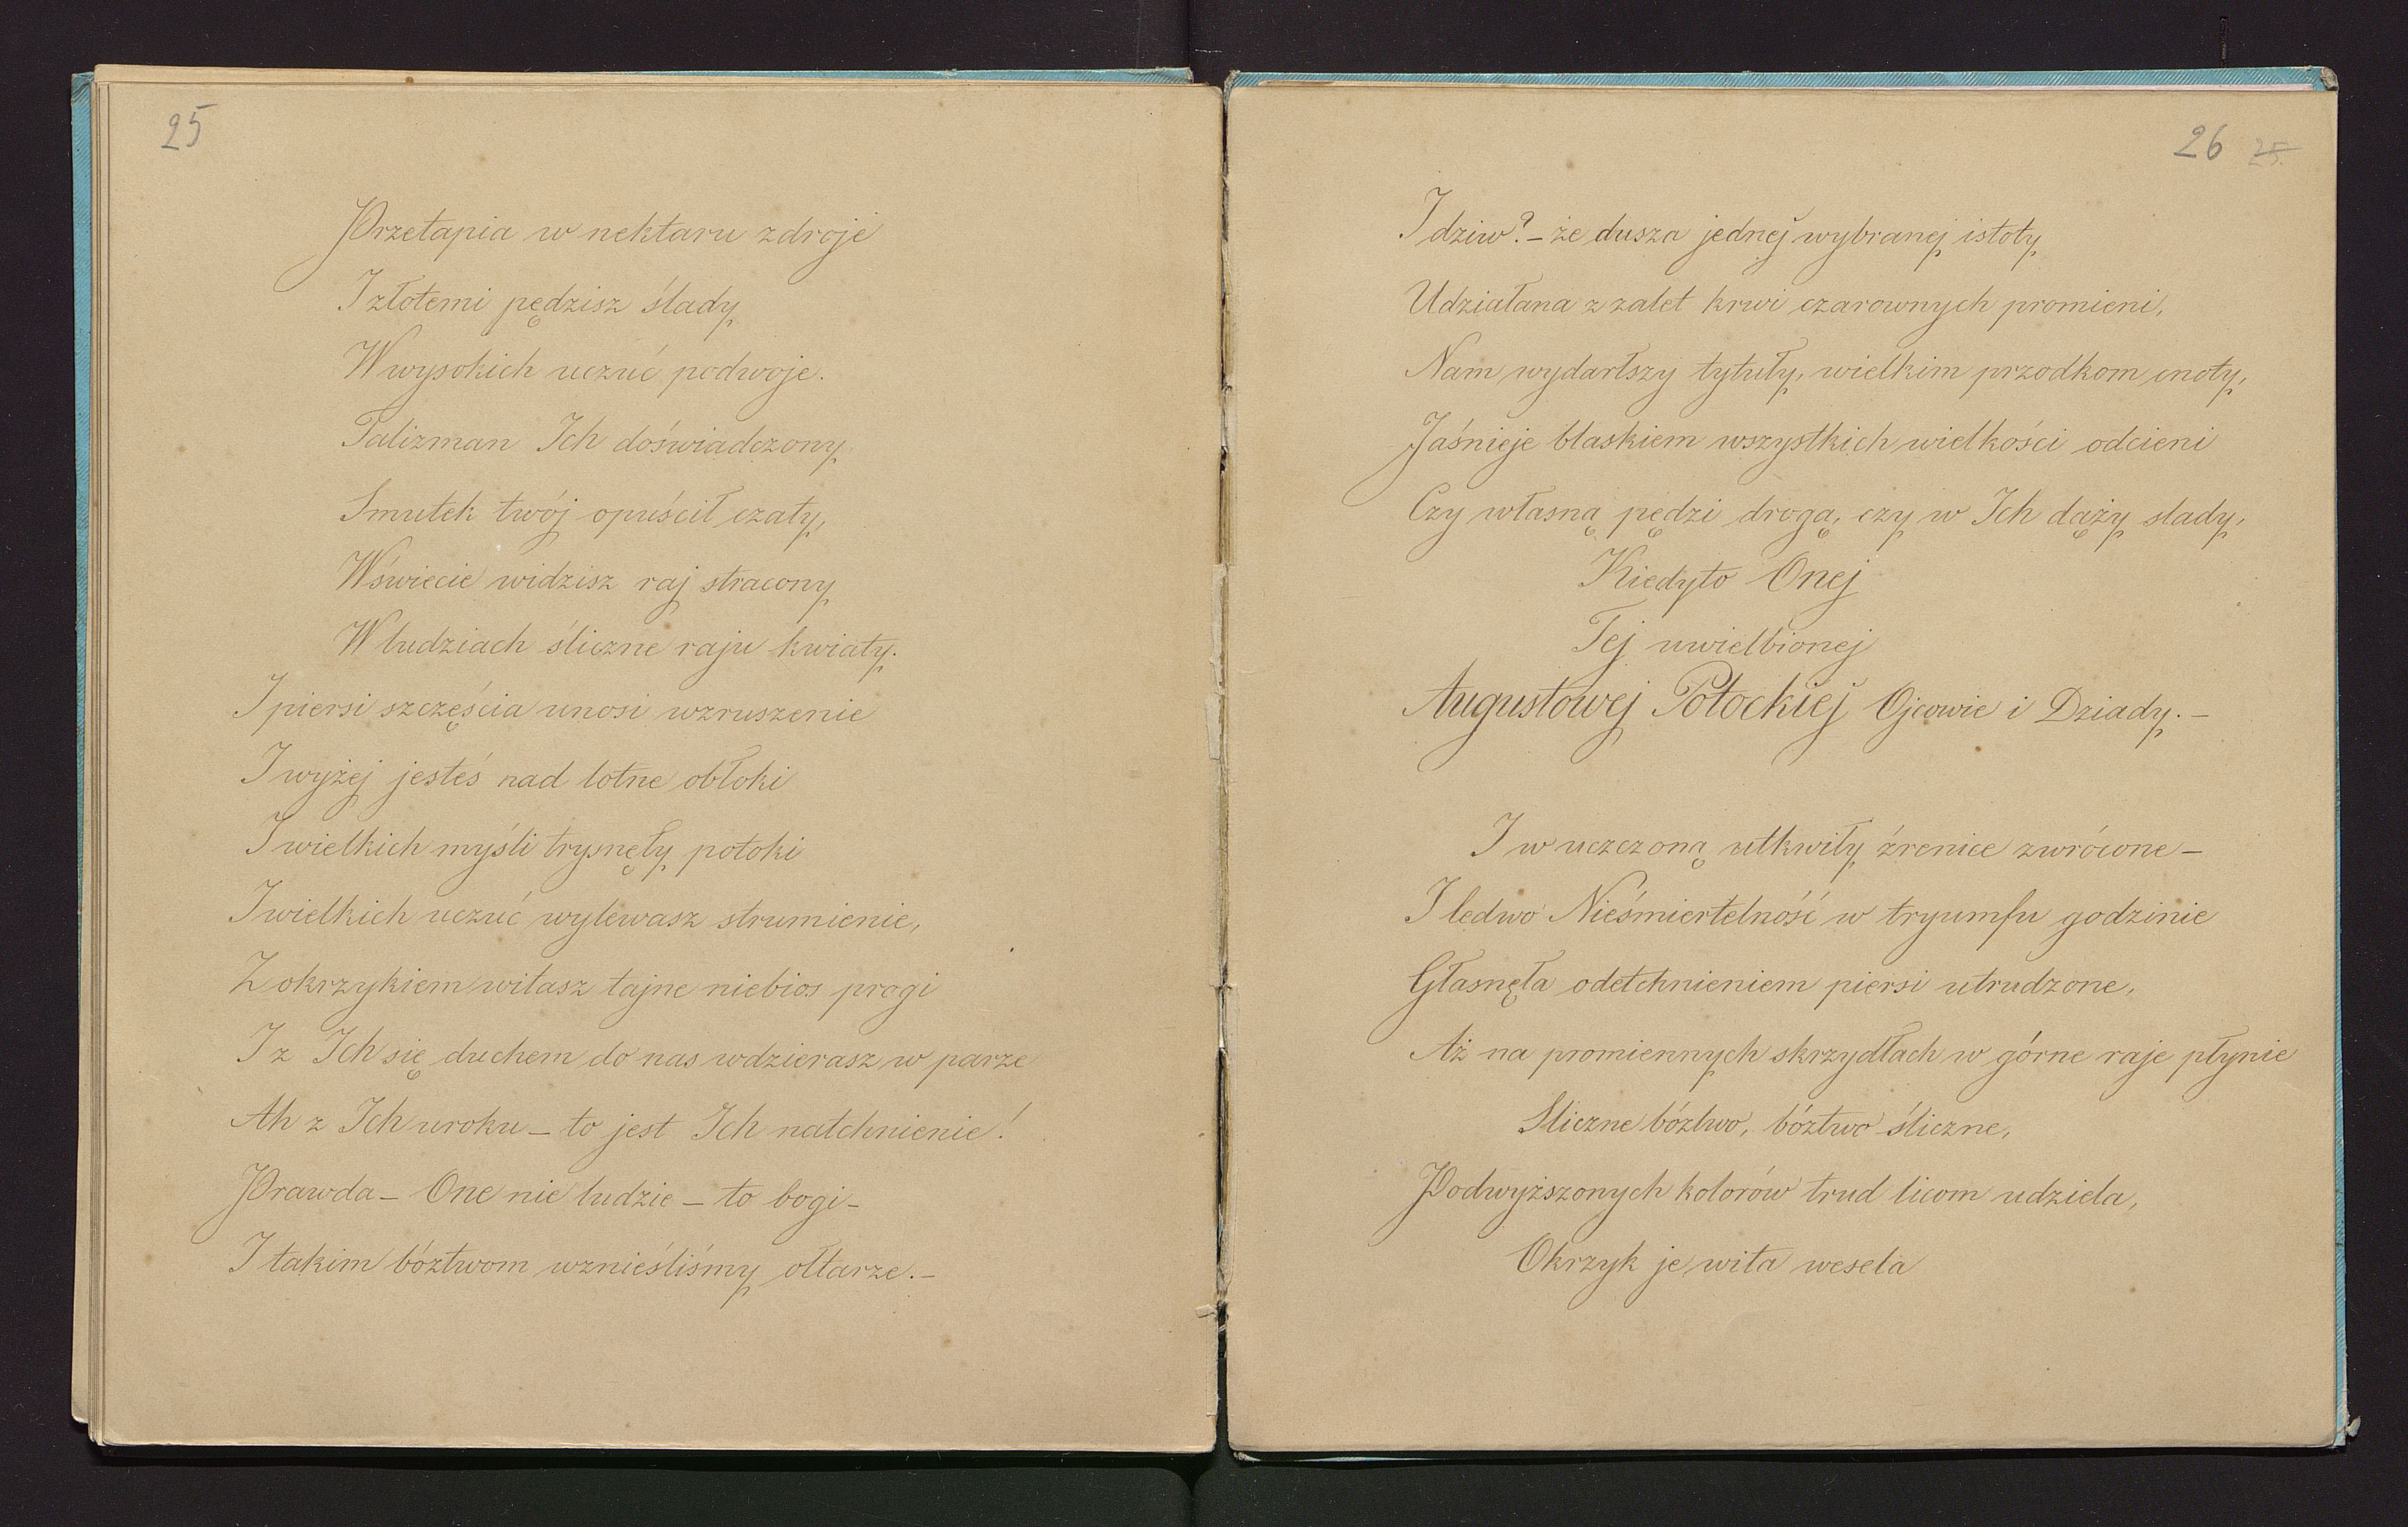 25
Przetapia w nektaru zdroje
I złotemi pędzisz ślady
W wysokich uczuć podwoje.
Talizman Ich doświadczony
Smutek twój opuścił czaty,
W świecie widzisz raj stracony
W ludziach śliczne raju kwiaty.
I piersi szczęścia unosi wzruszenie
I wyżej jesteś nad lotne obłoki
I wielkich myśli trysnęły potoki
I wielkich uczuć wylewasz strumienie,
Z okrzykiem witasz tajne niebios progi
I z Ich się duchem do nas wdzierasz w parze
Ah z Ich uroku – to jest Ich natchnienie!
Prawda – One nie ludzie – to bogi –
I takim bóztwom wznieśliśmy ołtarze. –
26 25.
I dziw? – że dusza jednej wybranej istoty
Udziałana z zalet krwi czarownych promieni,
Nam wydarłszy tytuły, wielkim przodkom cnoty,
Jaśnieje blaskiem wszystkich wielkości odcieni
Czy własną pędzi drogą, czy w Ich dąży slady,
Kiedyto Onej
Tej uwielbionej
Augustowej Potockiej Ojcowie i Dziady. –
I w uczczoną utkwiły źrenice zwrócone –
I ledwo Nieśmiertelność w tryumfu godzinie
Głasnęła odetchnieniem piersi utrudzone,
Aż na promiennych skrzydłach w górne raje płynie
Sliczne bóztwo, bóztwo śliczne,
Podwyższonych kolorów trud licom udziela,
Okrzyk je wita wesela